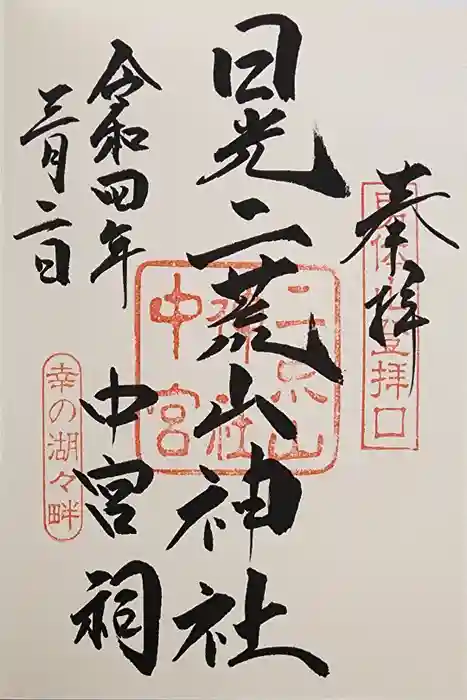 奉拝
日光二荒山神社
中宮祠
令和四年
三月二日
二荒山
神社
中宮
登拝口
幸の湖々畔